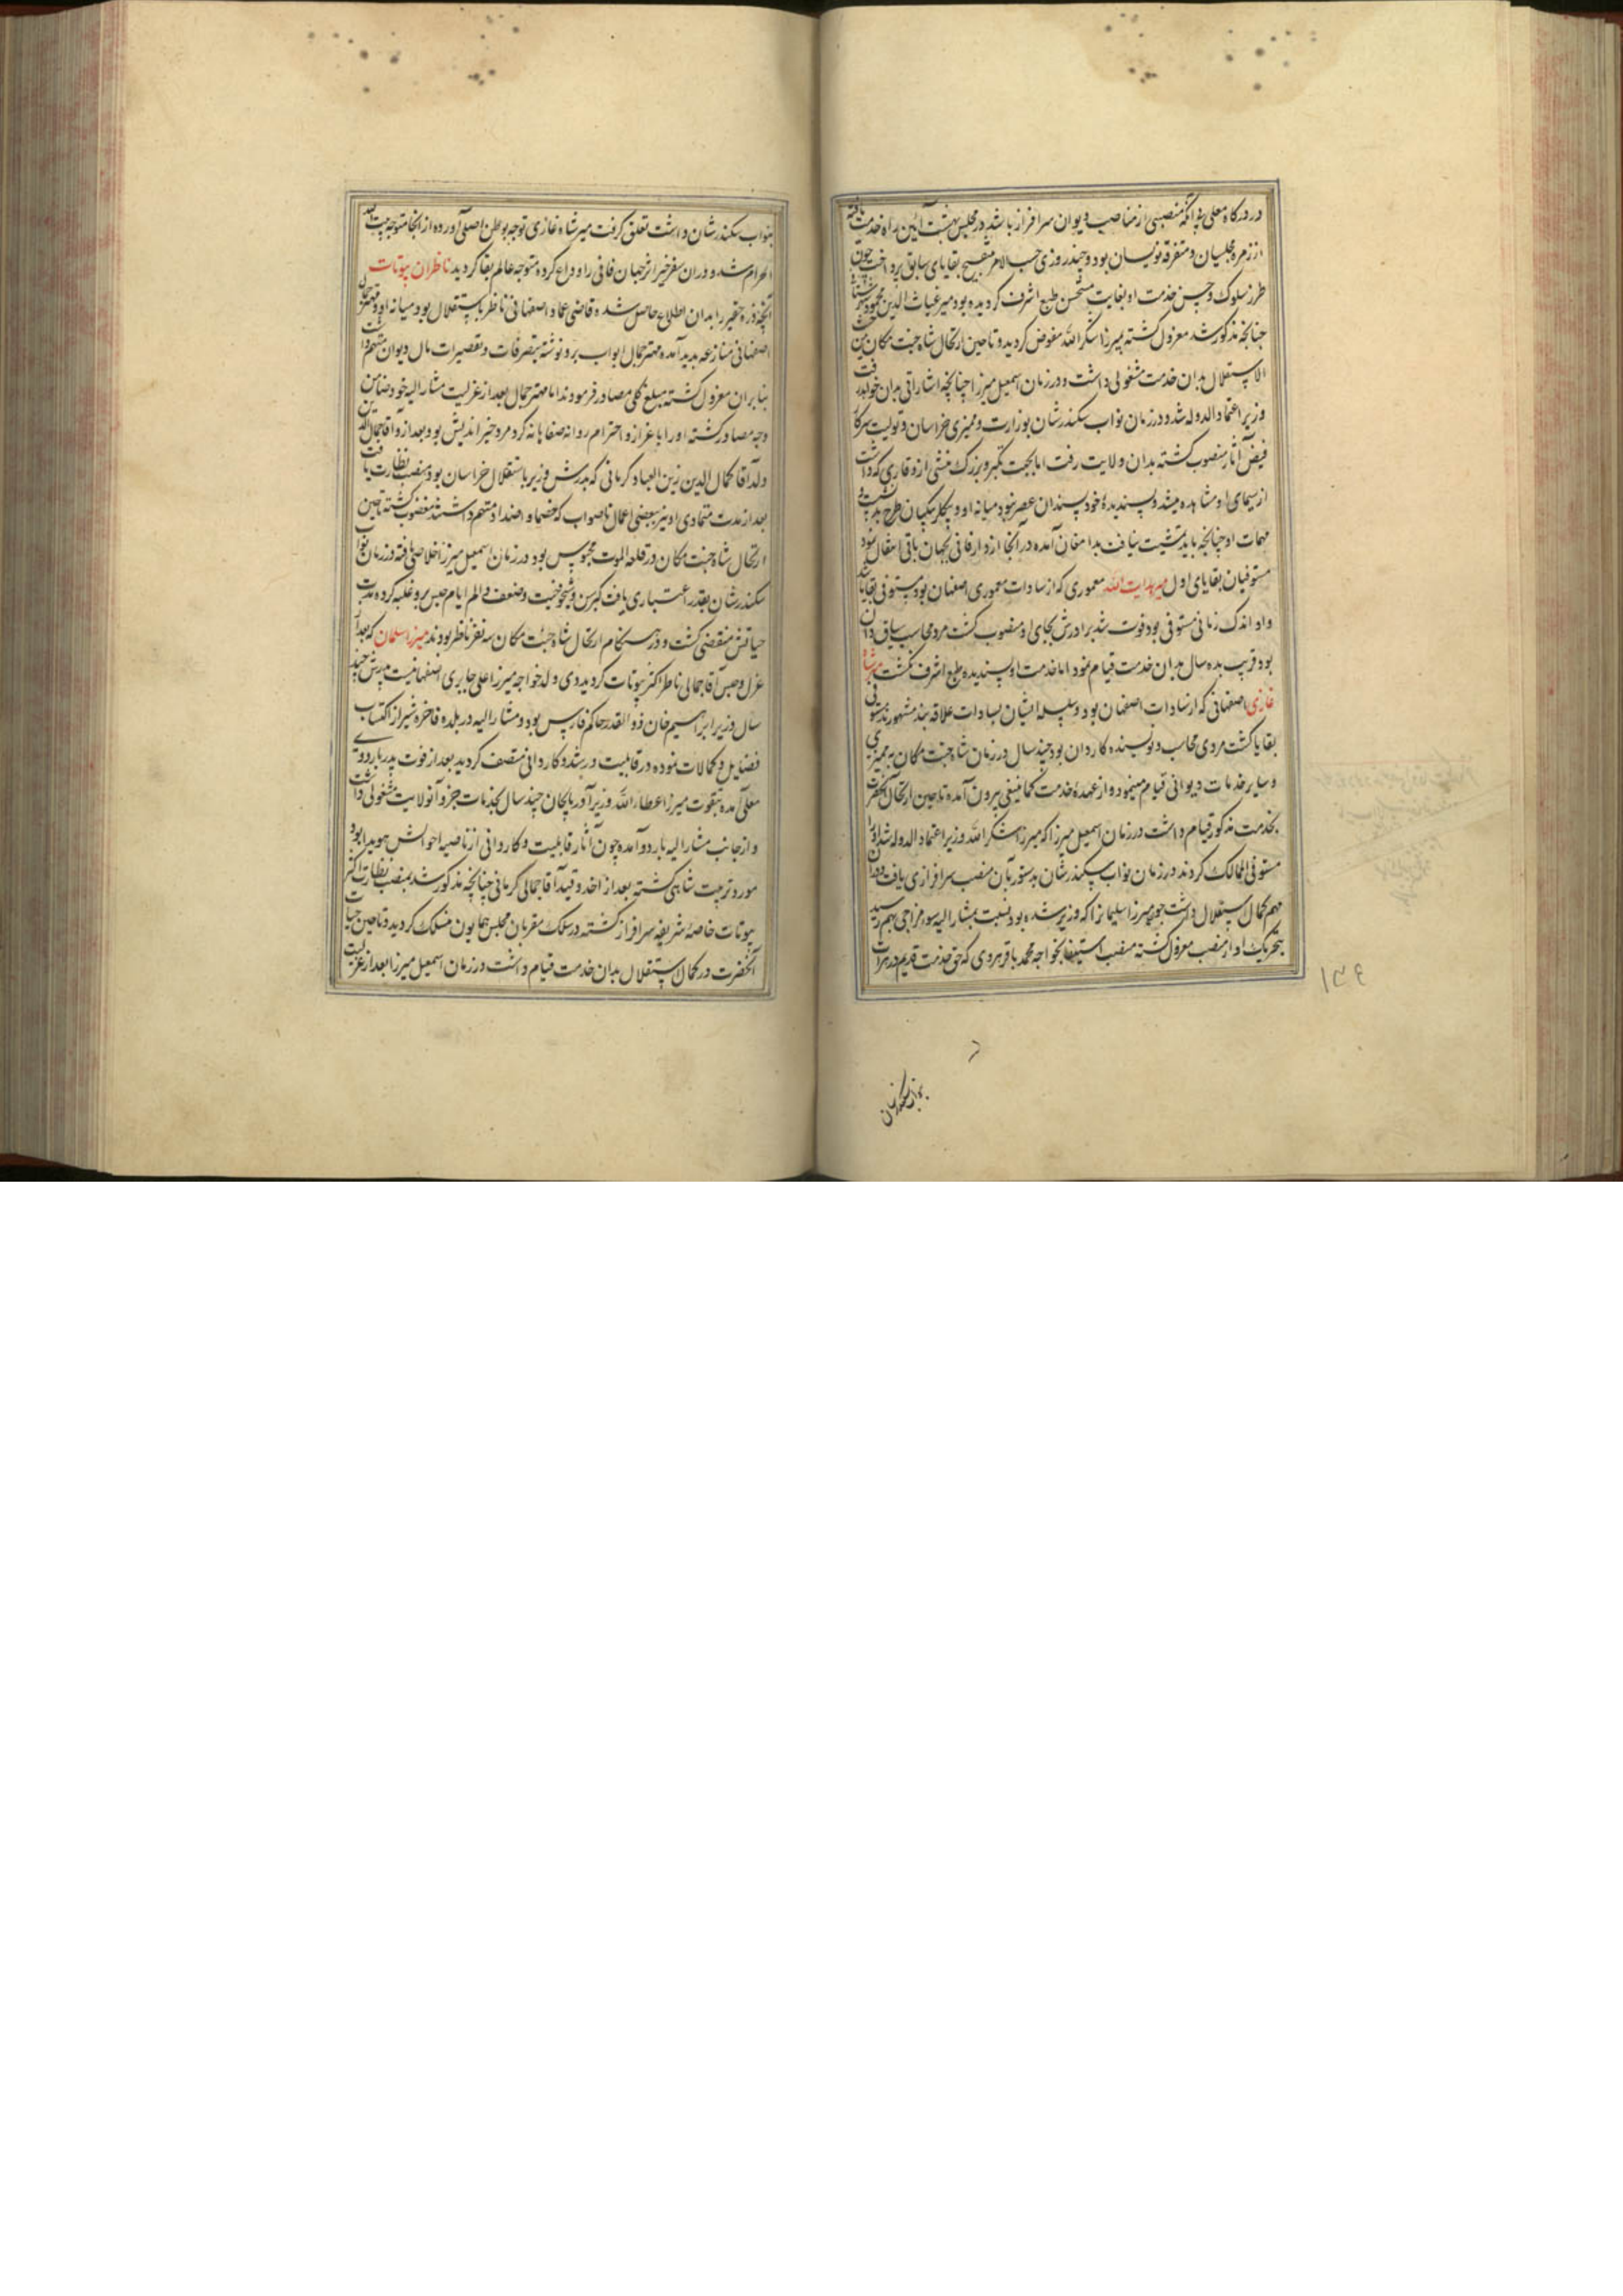 در درگاه معلی بی آنکه منصبی از مناصب دیوان سرافراز باشد در مجلس بهشت آیین راه خدمت یافته
از زمره مجلسیان و متفرقه نویسان بود و چند روزی حسب الامر بتنقیح بقایای سابق پرداخت چون
طرز سلوک و حسن خدمت او بغایت مستحسن طبع اشرف گردیده بود میر غیاث الدین محمود
چنانچه مذکور شد معزول گشته بمیرزا شکرالله مفوض گردید و تا حین ارتحال شاه جنت مکان من حیث
الاستقلال بدان خدمت مشغولی داشت و در زمان اسمعیل میرزا چنانچه اشاراتی بدان خواهد رفت
وزیر اعتماد الدوله شد و در زمان نواب سکندر شان بوزارت و ممیزی خراسان و تولیت سرکار
فیض آثار منصوب گشته بدان ولایت رفت اما بجهت تکبر و بزرگ منشی از وقاری که داشت
از سیمای او مشاهده میشد و پسندیدهٔ خود پسندان عصر نبود میانه او و بیگلربیگیان طرح
مهمات او چنانچه باید تمشیت نیافت بدامغان آمده در آنجا از دار فانی بجهان باقی انتقال نمود
مستوفیان بقایای اول میر هدایت الله معموری که از سادات معموری اصفهان بود مستوفی بقایا شد
و او اندک زمانی مستوفی بود فوت شد برادرش بجای او منصوب گشت مرد محاسب سیاق دان
بود قریب بده سال بدان خدمت قیام نمود اما خدمت او پسندیده طبع اشرف نگشت میر شاه
غازی اصفهانی که از سادات اصفهان بود و سلسله ایشان بسادات علاقه بند مشهورند مستوفی
بقایا گشت مردی محاسب و نویسنده کاردان بود چند سال در زمان شاه جنت مکان به ممیزی
و سایر خدمات دیوانی قیام مینمود و از عهدهٔ خدمت کماینبغی بیرون آمده تا حین ارتحال آنحضرت
بخدمت مذکور قیام داشت در زمان اسمعیل میرزا که میرزا شکرالله وزیر اعتماد الدوله شد او را
مستوفی الممالک کردند در زمان نواب سکندر شان بدستور بآن منصب سرافرازی یافت
هم کمال استقلال داشت چون میرزا سلیمان را که وزیر شده بود نسبت بمشارالیه سوء مزاجی بهم رسید
بتحریک او از منصب معزول گشته منصب استیفا بخواجه محمد باقر هروی که حق خدمت قدیم در هرات
۱۴۶
بنواب سکندرشان
بنواب سکندر شان داشت تعلق گرفت میر شاه غازی توجه بوطن اصلی آورده از آنجا متوجه بیت الله
الحرام شد و در آن سفر خیر اثر جهان فانی را وداع کرده متوجه عالم بقا گردید ناظران بیوتات
آنچه ذره حقیر را بدان اطلاع حاصل شده قاضی عماد اصفهانی ناظر باستقلال بود میانه او و مهتر جمال
اصفهانی منازعه پدید آمده مهتر جمال ابواب بر او نوشته بتصرفات و تقصیرات مال دیوان متهم داشت
بنابر آن معزول گشته مبلغ کلی مصادر فرمودند اما مهتر جمال بعد از عزلت مشارالیه خود ضامن
وجه مصادر گشته او را باعزاز و احترام روانه صفاهان کرد مرد خیر اندیش بود بعد از او آقا جمال الدین
ولد آقا کمال الدین زین العباد کرمانی که پدرش وزیر باستقلال خراسان بود بمنصب نظارت یافت
بعد از مدت متمادی او نیز ببعضی اعمال ناصواب که خصما و اضداد متهم داشتند مغضوب گشته تا حین
ارتحال شاه جنت مکان در قلعه الموت محبوس بود در زمان اسمعیل میرزا خلاصی یافته در زمان نواب
سکندر شان بقدر اعتباری یافت کبر سن و شیخوخیت و ضعف و الم ایام حبس برو غلبه کرده مدت
حیاتش منقضی گشت و در هنگام ارتحال شاه جنت مکان سه نفر ناظر بودند میرزا سلمان که بعد از
عزل و حبس آقا جمالی ناظر اکثر بیوتات گردید وی ولد خواجه میرزا علی جابری اصفهانیست پدرش چند
سال وزیر ابراهیم خان ذوالقدر حاکم فارس بود و مشارالیه در بلده فاخره شیراز اکتساب
فضایل و کمالات نموده در قابلیت و رشد و کاردانی متصف گردید بعد از فوت پدر باردوی
معلی آمده بتقویت میرزا عطاءالله وزیر آذربایجان چند سال بخدمات جزو آنولایت مشغولی داشت
و از جانب مشارالیه باردو آمده چون آثار قابلیت و کاردانی از ناصیه احوالش هویدا بود
مورد تربیت شاهی گشته بعد از اخذ و قید آقا جمالی کرمانی چنانچه مذکور شد بمنصب نظارت اکثر
بیوتات خاصهٔ شریفه سرافراز گشته در سلک مقربان مجلس همایون منسلک گردید و تا حین حیات
آنحضرت در کمال استقلال بدان خدمت قیام داشت در زمان اسمعیل میرزا بعد از عزلت